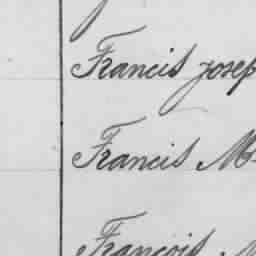 Francis Josep
Francis M
François